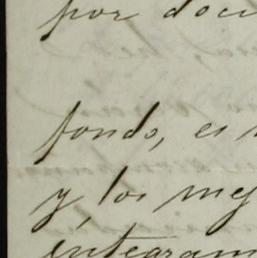 por doci
fondo, es
y, los mej
integram